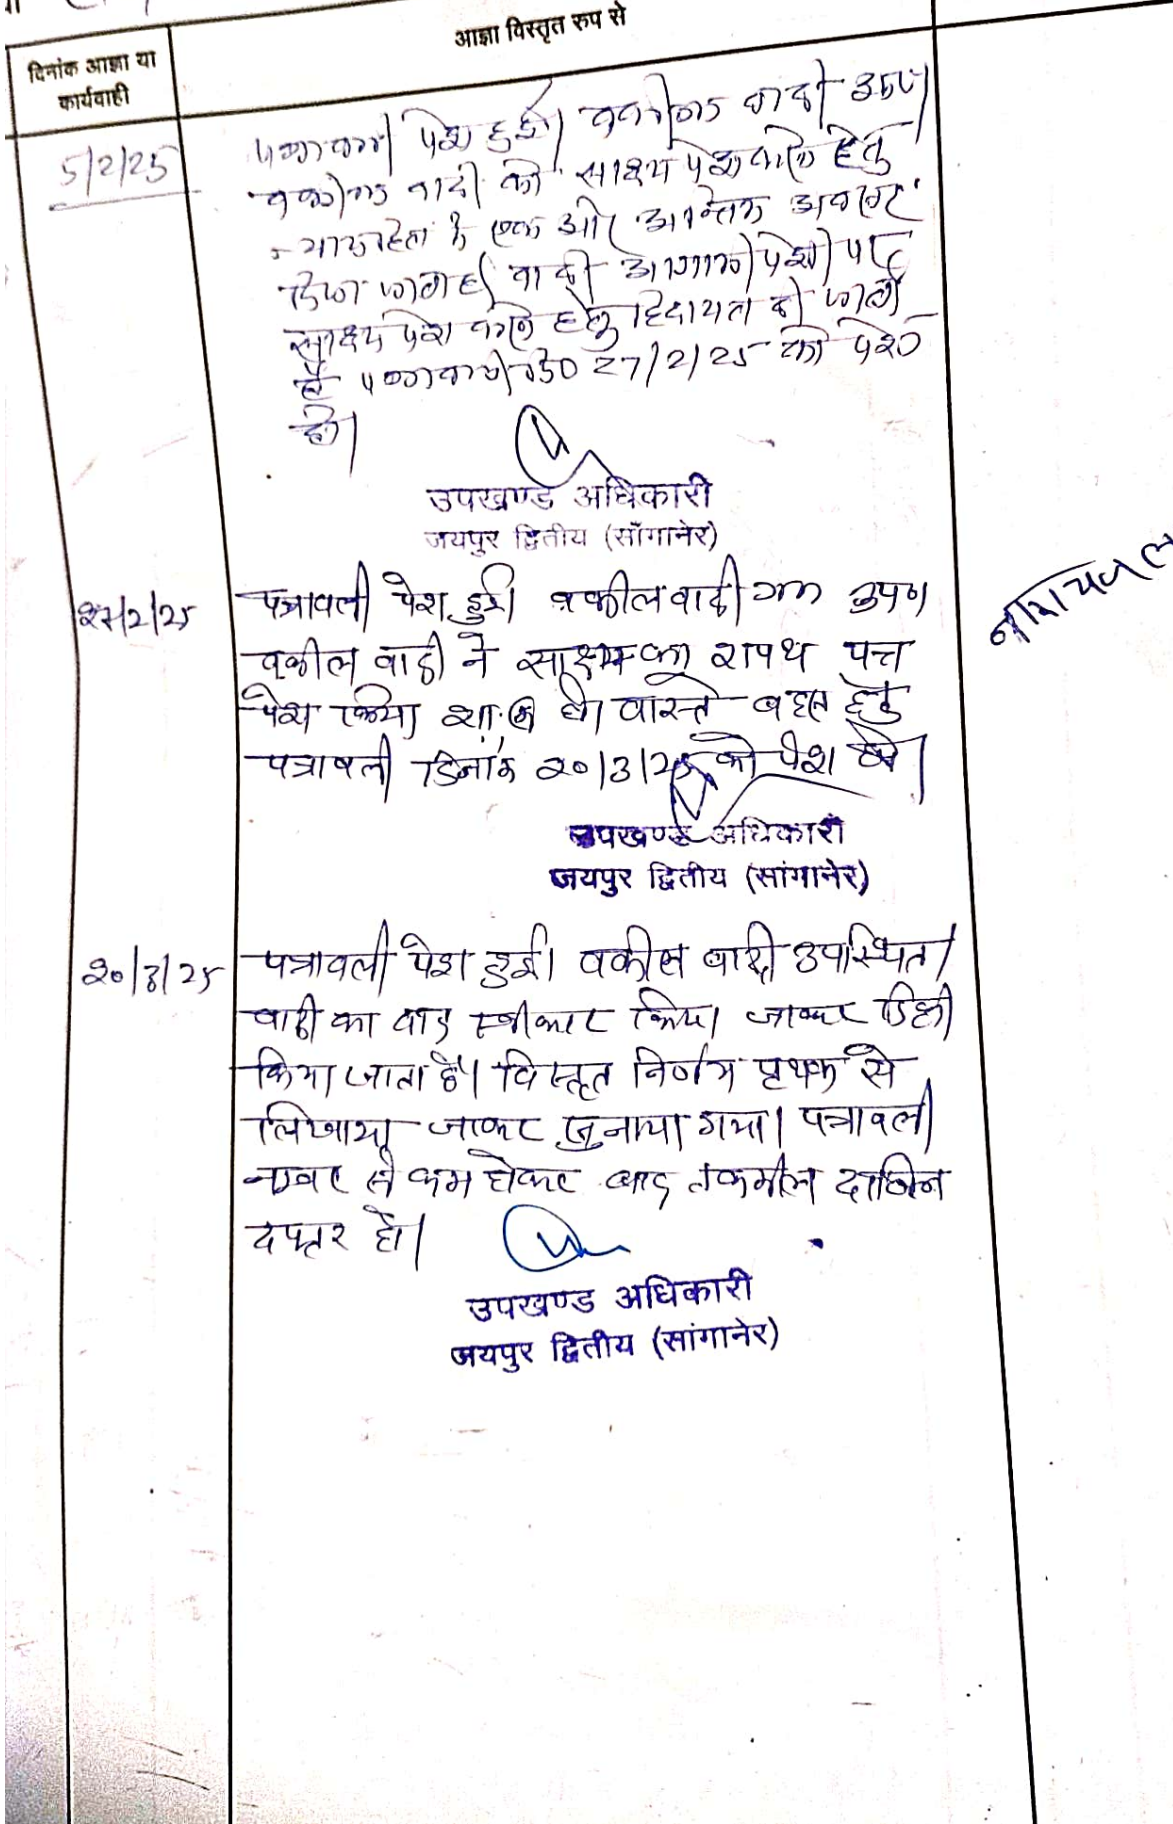 आज्ञा विस्तृत रुप से
दिनांक आज्ञा या
कार्यवाही
5/2/25
पत्रावली पेश हुई। वकील वादी उप०।
वकील वादी को साक्ष्य पेश करने हेतु
न्यायहित में एक और अन्तिम अवसर
दिया जाता है। वादी आगामी पेशी पर
साक्ष्य पेश करने हेतु हिदायत दी जाती
है पत्रावली दि० 27/2/25 को पेश
हो।
उपखण्ड अधिकारी
जयपुर द्वितीय (साँगानेर)
२७/2/25
पत्रावली पेश हुई। वकील वादी उप०
वकील वादी ने साक्ष्य का शपथ पत्र
पेश किया शा. हो। वास्ते बहस हेतु
पत्रावली दिनांक २०/3/25 को पेश होवे।
उपखण्ड अधिकारी
जयपुर द्वितीय (सांगानेर)
२०/3/25
पत्रावली पेश हुई। वकील वादी उपस्थित।
वादी का वाद स्वीकार किया जाकर डिक्री
किया जाता है। विस्तृत निर्णय पृथक से
लिखाया जाकर सुनाया गया। पत्रावली
नम्बर से कम होकर बाद तकमील दाखिल
दफ्तर हो।
उपखण्ड अधिकारी
जयपुर द्वितीय (सांगानेर)